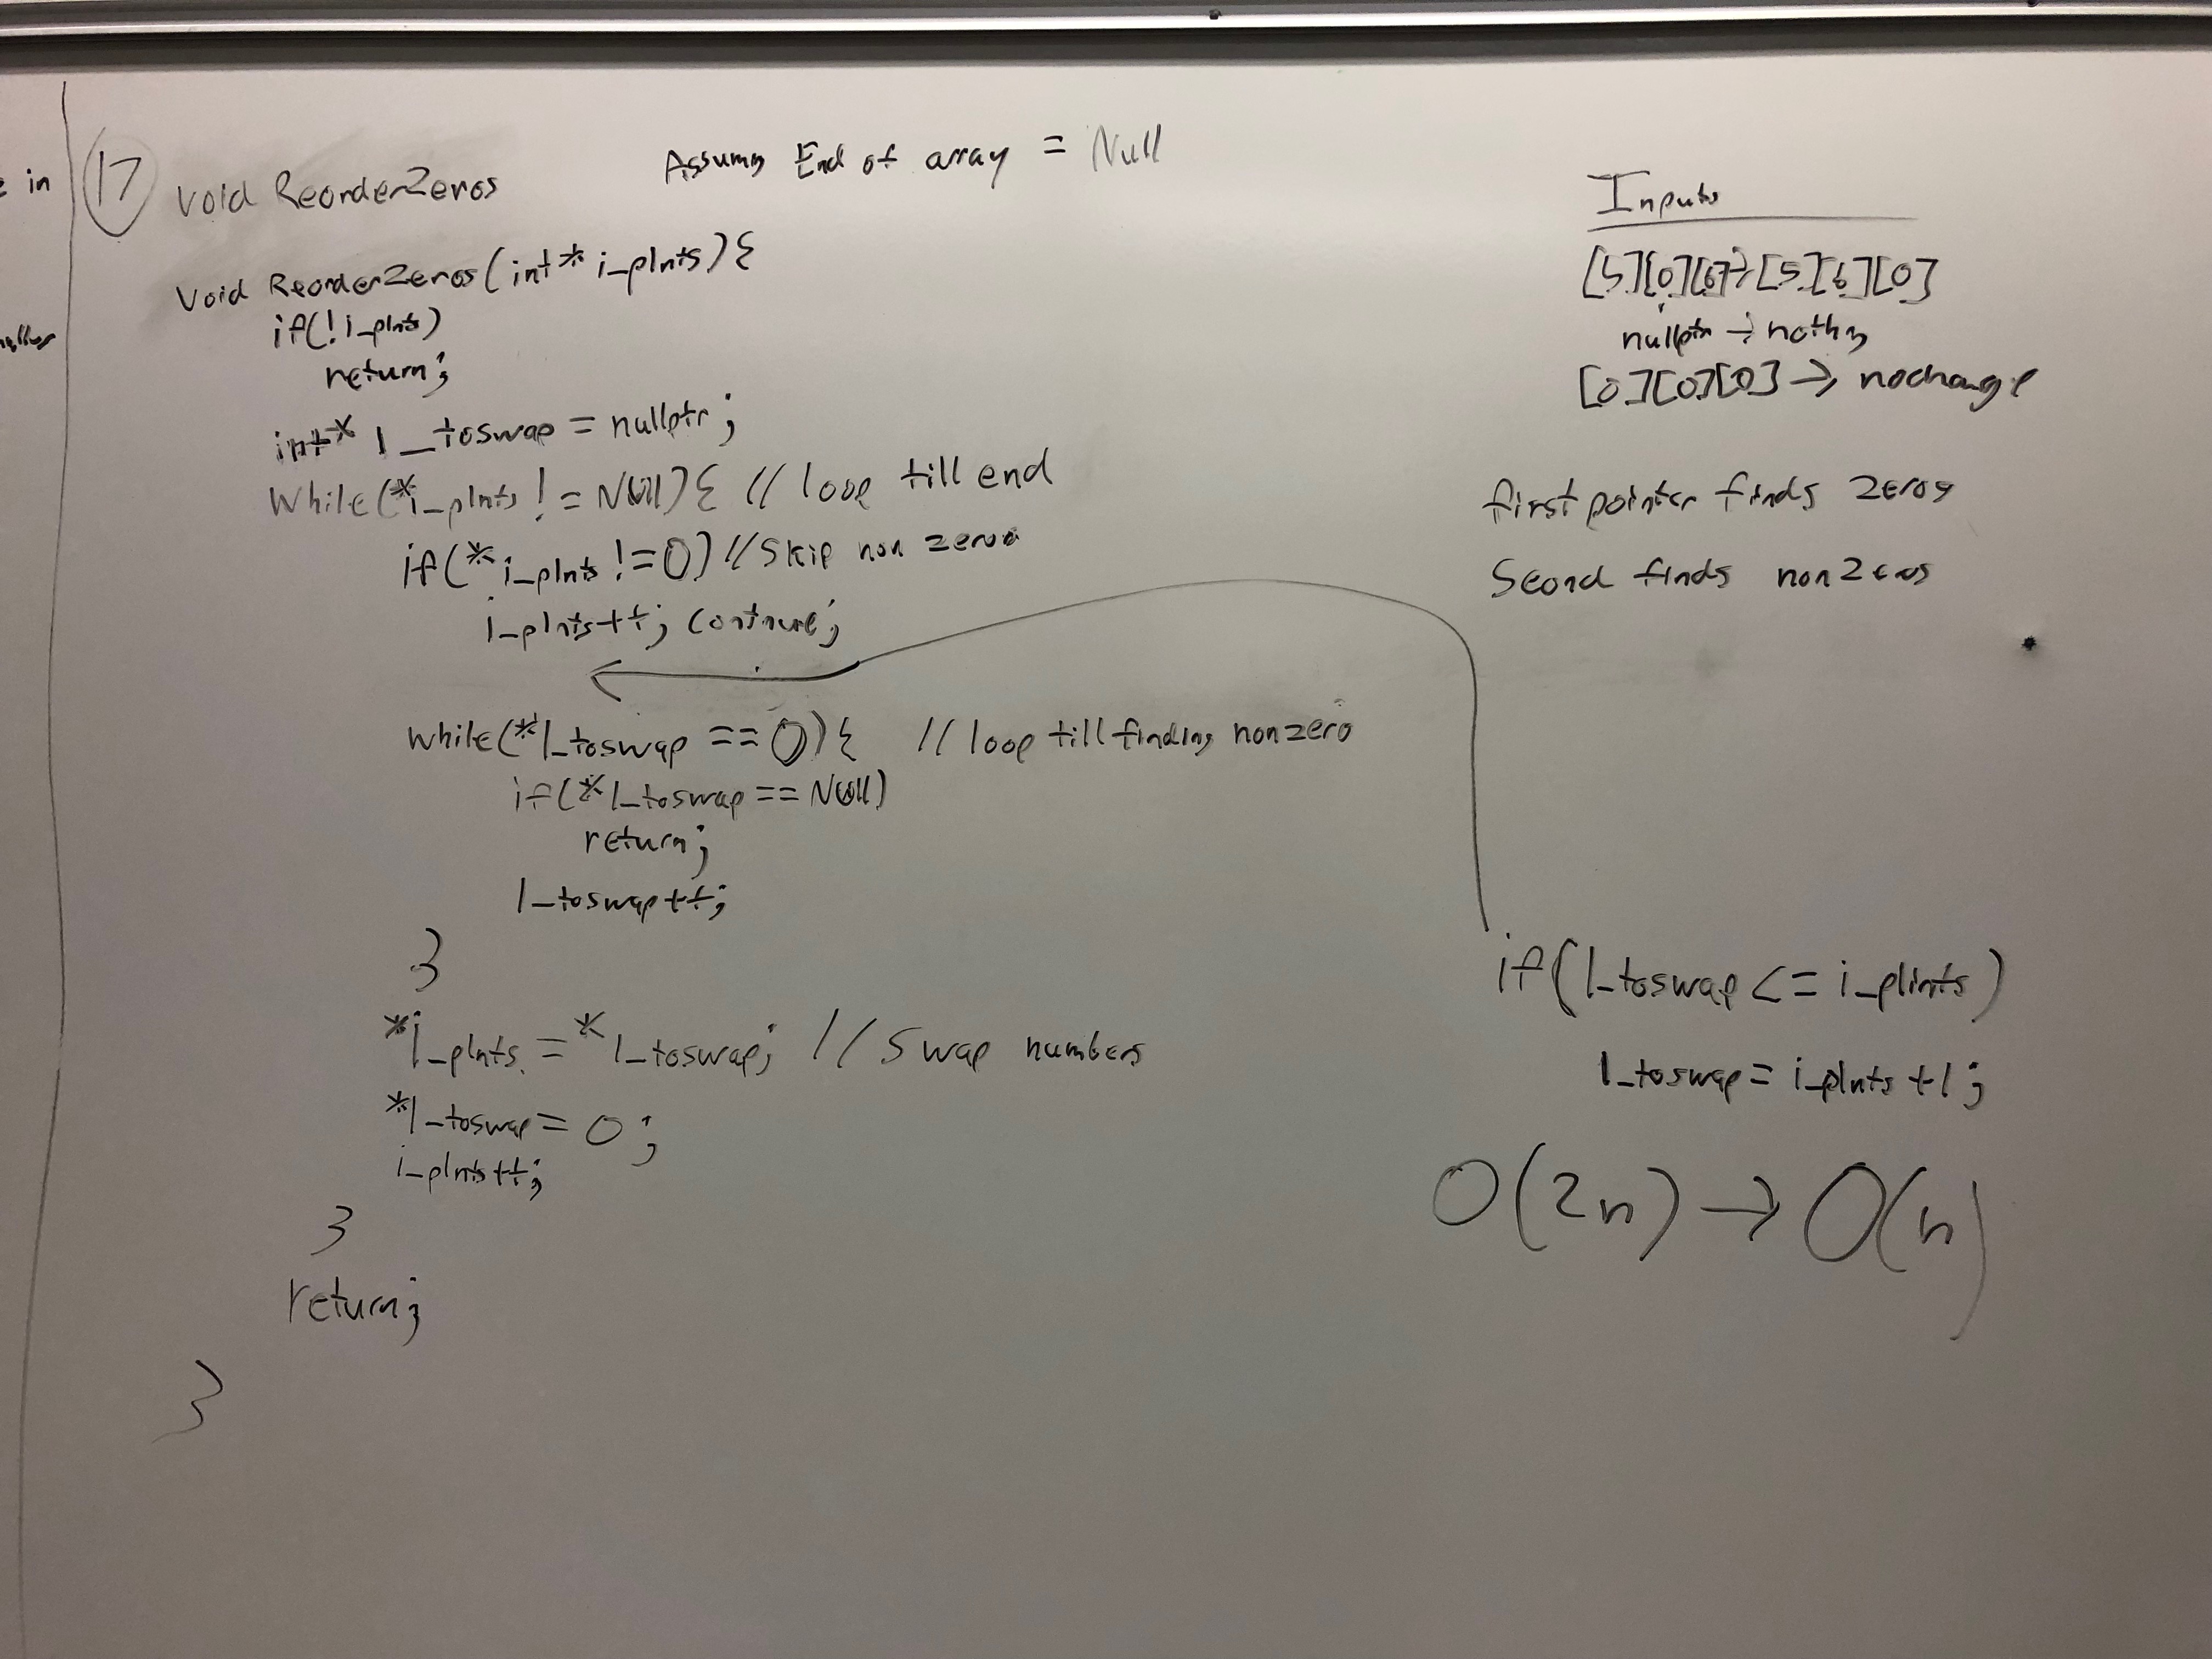 e in
17
Void ReorderZeros
Assuming End of array = Null
Void ReorderZeros(int* i_pInts){
if(!i_pInts)
return;
int* l_toswap = nullptr;
While(*i_pInts != Null){ // loop till end
if(*i_pInts != 0) //Skip non zeros
i_pInts++; continue;
while(*l_toswap == 0){ // loop till finding nonzero
if(*l_toswap == Null)
return;
l_toswap++;
}
*i_pInts = *l_toswap; // Swap numbers
*l_toswap = 0;
i_pInts++;
}
return;
}
Inputs
[5][0][6]→[5][6][0]
nullptr → nothing
[0][0][0] → nochange
first pointer finds zeros
Second finds nonZeros
if(l_toswap <= i_pInts)
l_toswap = i_pInts +1;
O(2n) → O(n)